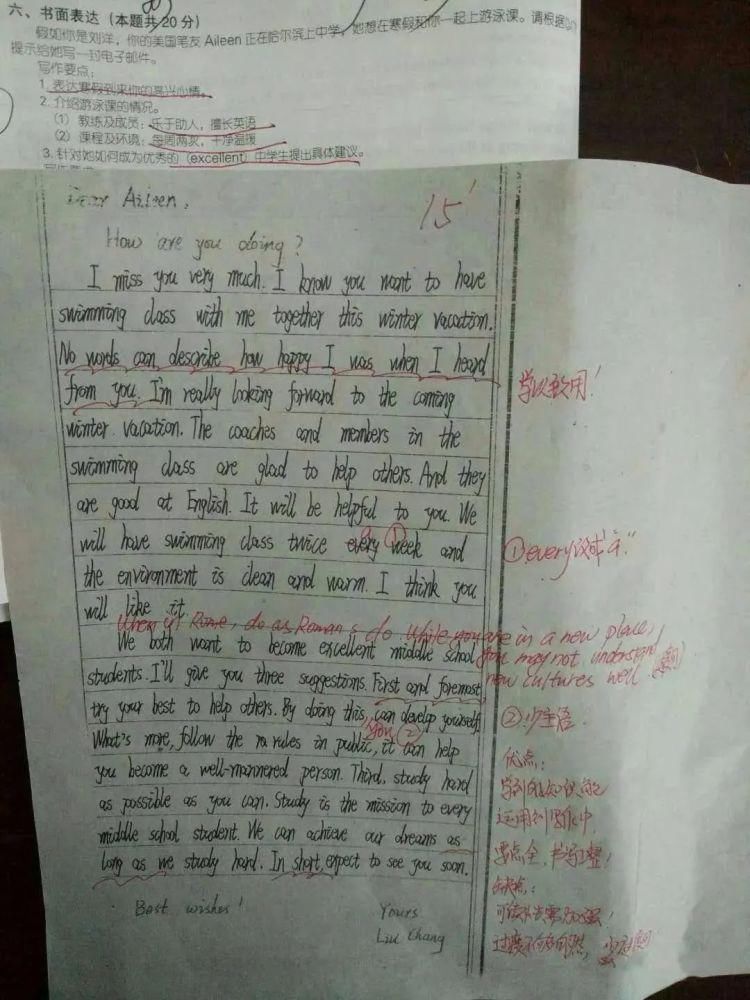 六、书面表达(本题共20分)
假如你是刘洋,你的美国笔友 Aileen 正在哈尔滨上中学,她想在寒假和你一起上游泳课。请根据以下
提示给她写一封电子邮件。
写作要点:
1. 表达寒假到来你的高兴心情。
2. 介绍游泳课的情况。
(1) 教练及成员:乐于助人,擅长英语
(2) 课程及环境:每周两次,干净温暖
3. 针对她如何成为优秀的(excellent)中学生提出具体建议。
Dear Aileen,
15'
How are you doing?
I miss you very much. I know you want to have
swimming class with me together this winter vacation.
No words can describe how happy I was when I heard
from you. I'm really looking forward to the coming
学以致用!
winter vacation. The coaches and members in the
swimming class are glad to help others. And they
are good at English. It will be helpful to you. We
will have swimming class twice every week and
①
①every改成"a"
the environment is clean and warm. I think you
will like it.
When in Rome, do as Romans do. While you are in a new place,
you may not understand
new cultures well.
We both want to become excellent middle school
students. I'll give you three suggestions. First and foremost,
try your best to help others. By doing this, can develop yourself.
you ②
②少主语
What's more, follow the ro rules in public, it can help
you become a well-mannered person. Third, study hard
as possible as you can. Study is the mission to every
middle school student. We can achieve our dreams as
long as we study hard. In short, expect to see you soon.
优点:
学到的知识能
运用到写作中
要点全,书写工整!
缺点:
过渡不够自然,
Best wishes!
Yours
Liu Chang